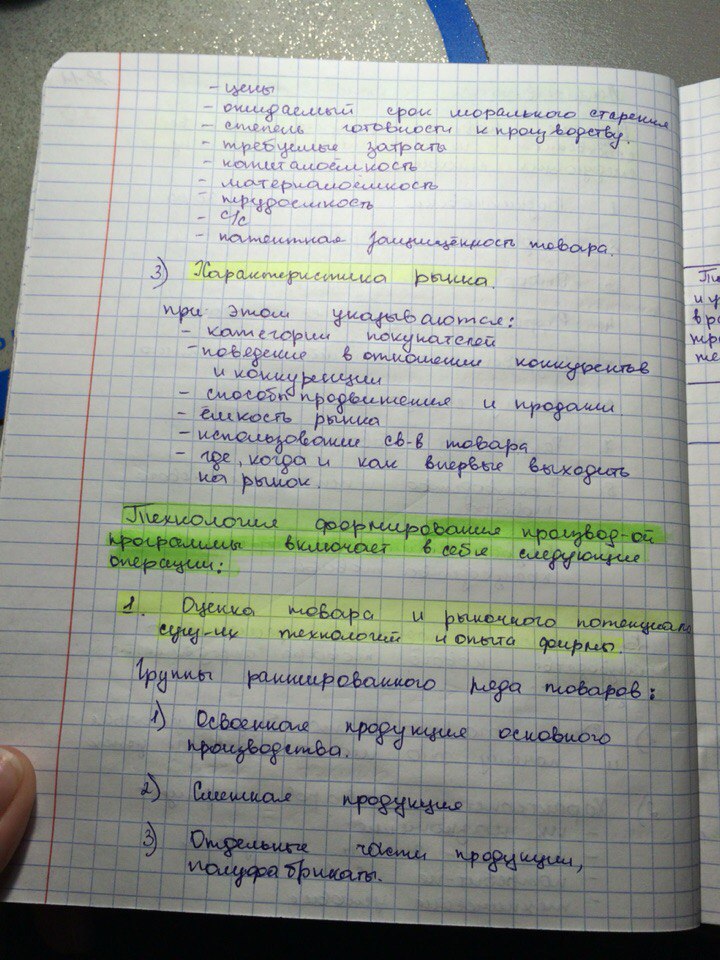 - цены
- ожидаемый срок морального старения
- степень готовности к производству.
- требуемые затраты
- капиталоёмкость
- материалоёмкость
- трудоёмкость
- с/с
- патентная защищённость товара.
3) Характеристика рынка.
при этом указываются:
- категории покупателей
- поведение в отношении конкурентов
и конкуренции
- способы продвижения и продажи
- ёмкость рынка
- использование св-в товара
- где, когда и как впервые выходить
на рынок.
Технология формирования производ-ой
программы включает в себя следующие
операции:
1. Оценка товара и рыночного потенциала
сущ-их технологий и опыта фирмы.
Группы ранжированного ряда товаров:
1) Освоенная продукция основного
производства.
2) Смежная продукция
3) Отдельные части продукции,
полуфабрикаты.